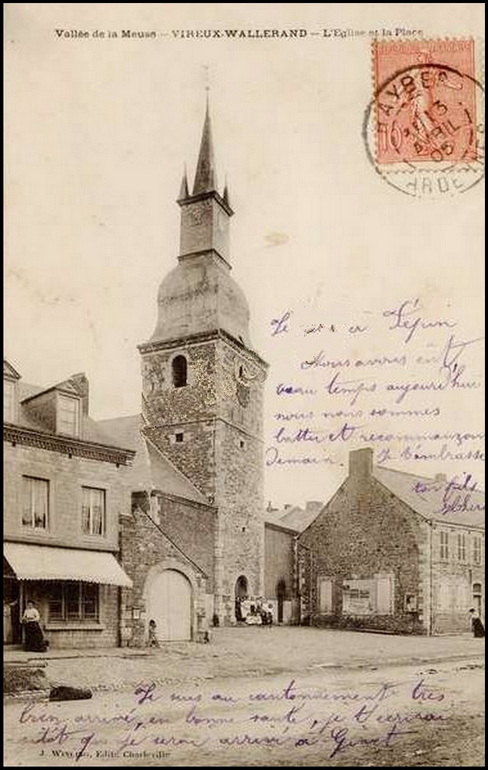 Vallée de la Meuse – VIREUX-WALLERAND – L'Eglise et la Place
HAYBES
13
AVRIL
05
ARDENNES
Je suis à Lépin
Nous avons eu
beau temps aujourd'hui
nous nous sommes
battu et recommanzon
Demain. Je t'embrasse
ton fils
Je suis au cantonnement très
bien arrivé, en bonne santé, je t'écrirai
sitôt que je serai arrivé à Givet
J. Wincho, Edit. Charleville